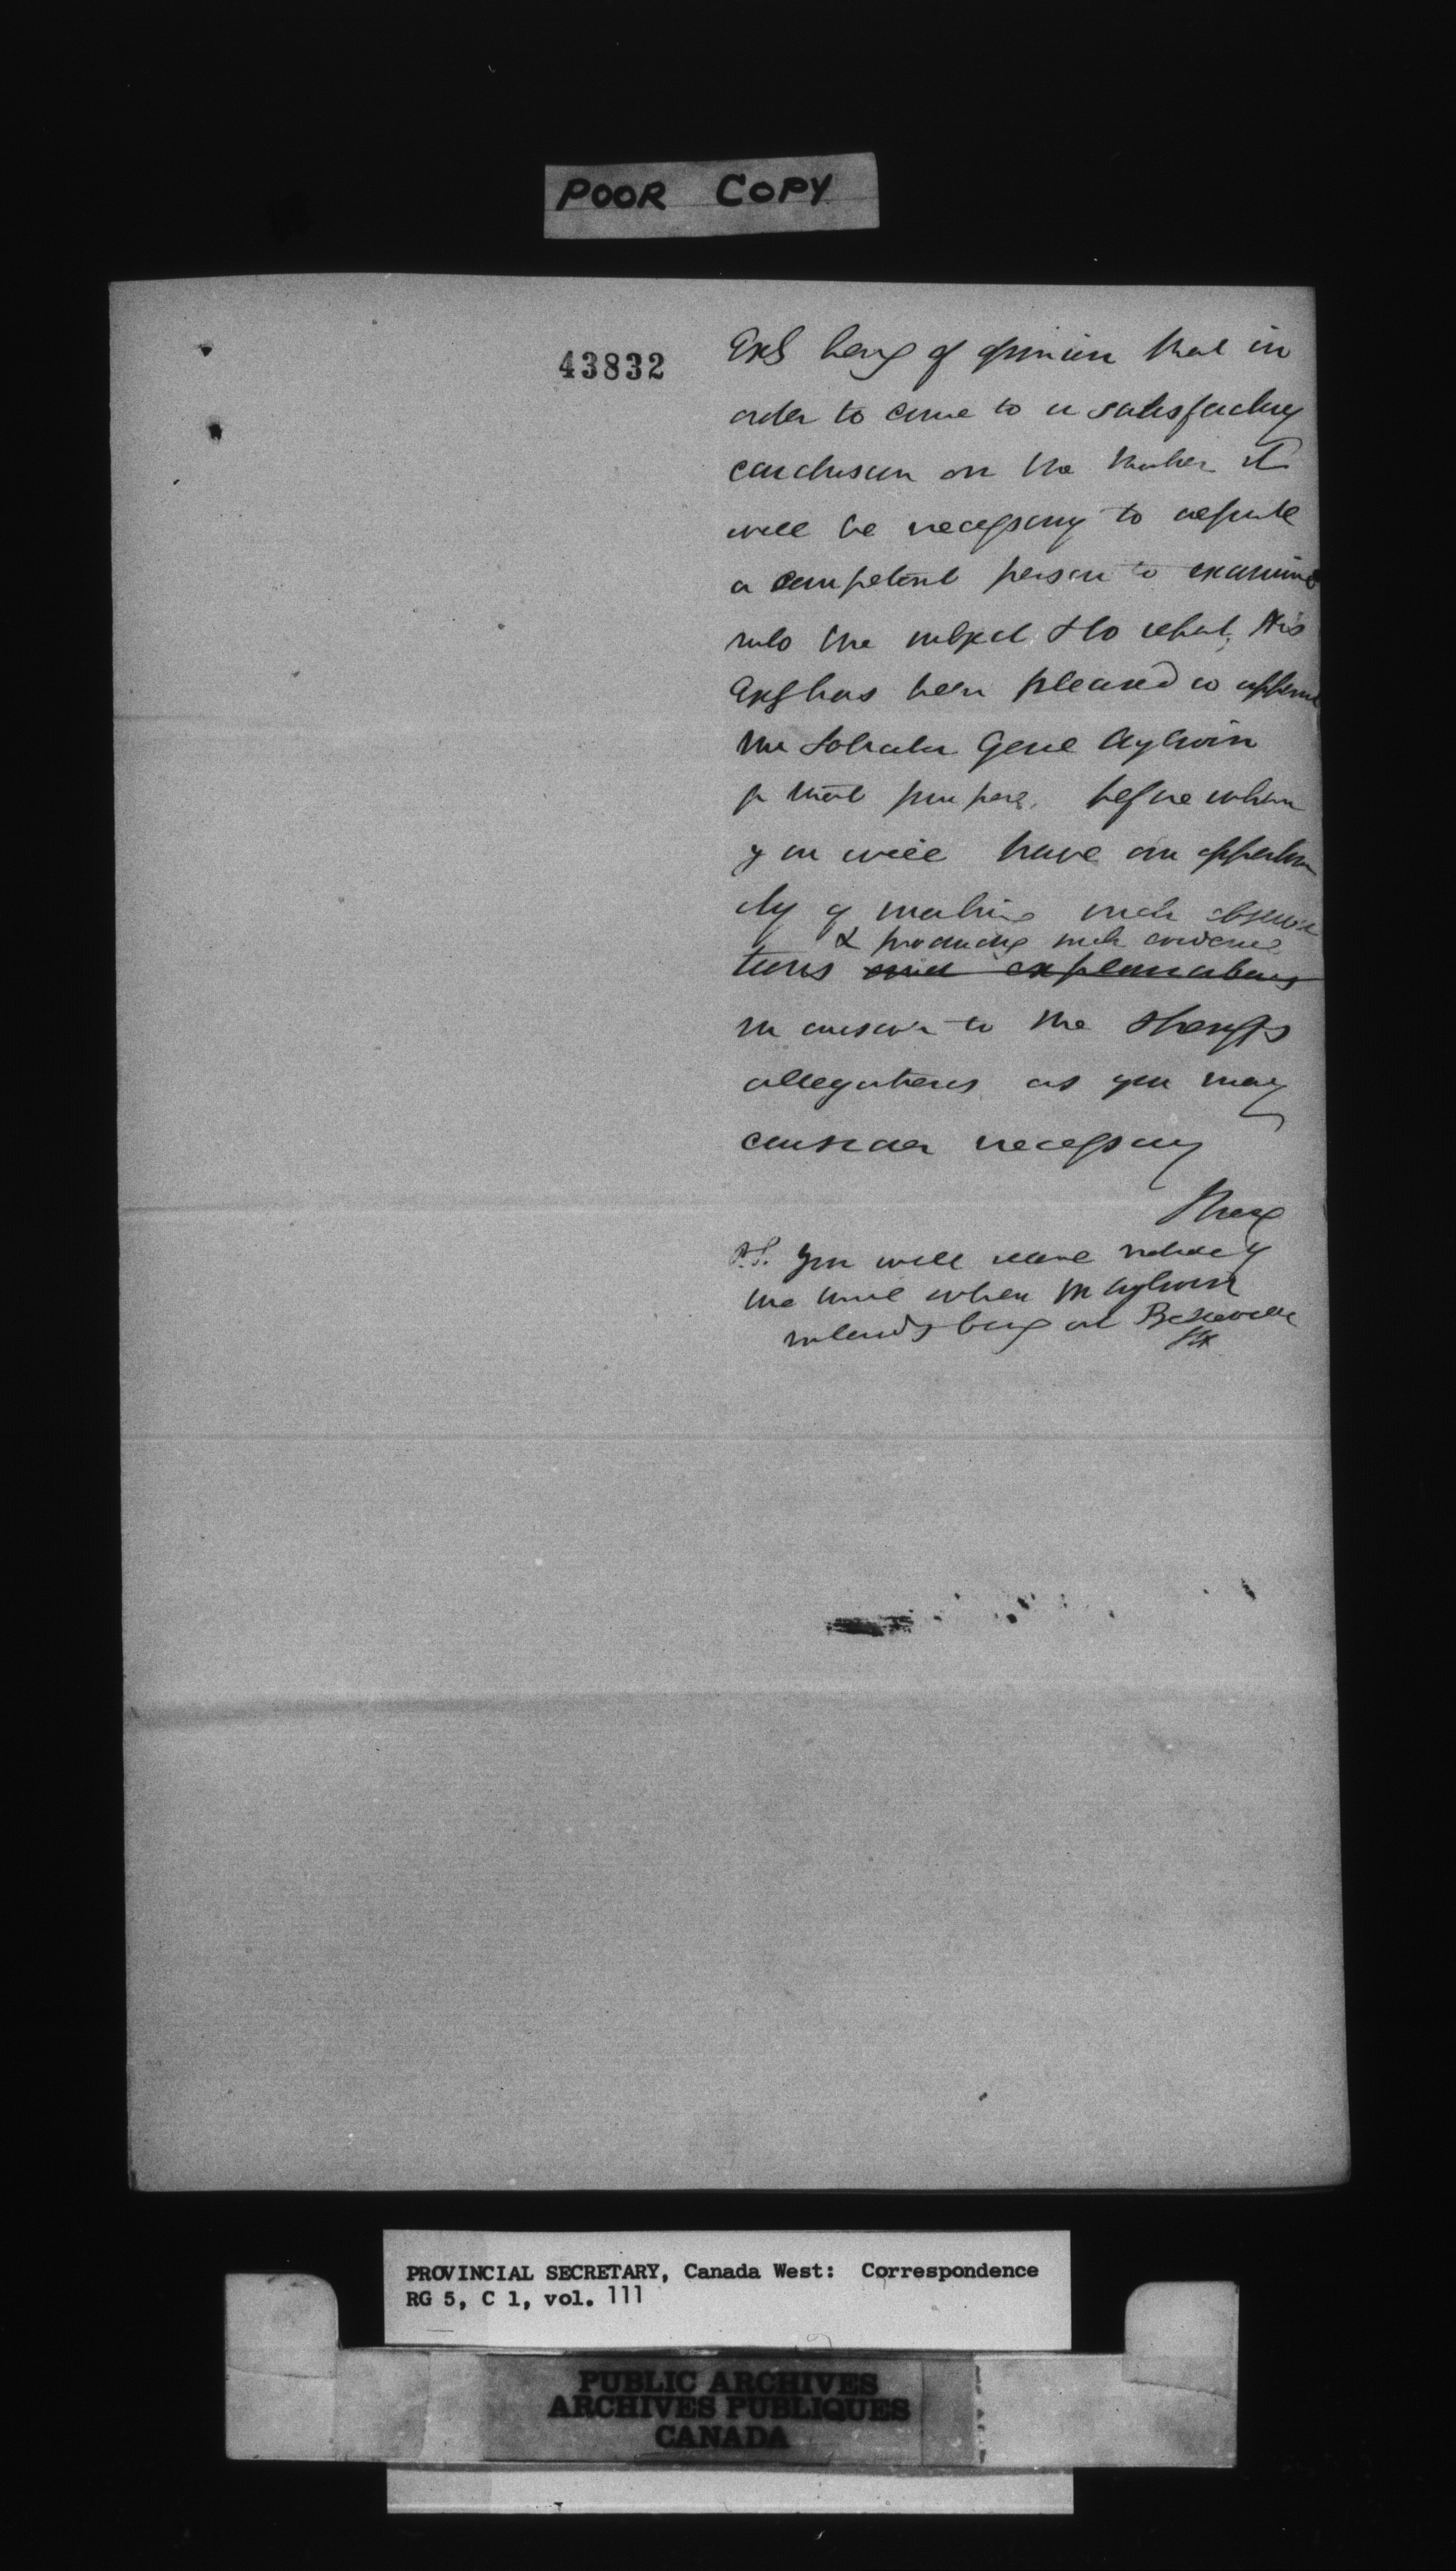 POOR COPY
43832
Exc being of opinion that in
order to come to a satisfactory
conclusion on the matter it
will be necessary to depute
a competent person to examine
into the subject & to report, His
Excy has been pleased to appoint
Mr Solicitor Genl Aylwin
for that purpose, before whom
you will have an opportun
ity of making such observa
& producing such evidence
tions and explanations
in answer to the Sheriffs
allegations as you may
consider necessary
P.S. You will receive notice of
the time when Mr Aylwin
intends being at Belleville
PROVINCIAL SECRETARY, Canada West: Correspondence
RG 5, C 1, vol. 111
PUBLIC ARCHIVES
ARCHIVES PUBLIQUES
CANADA